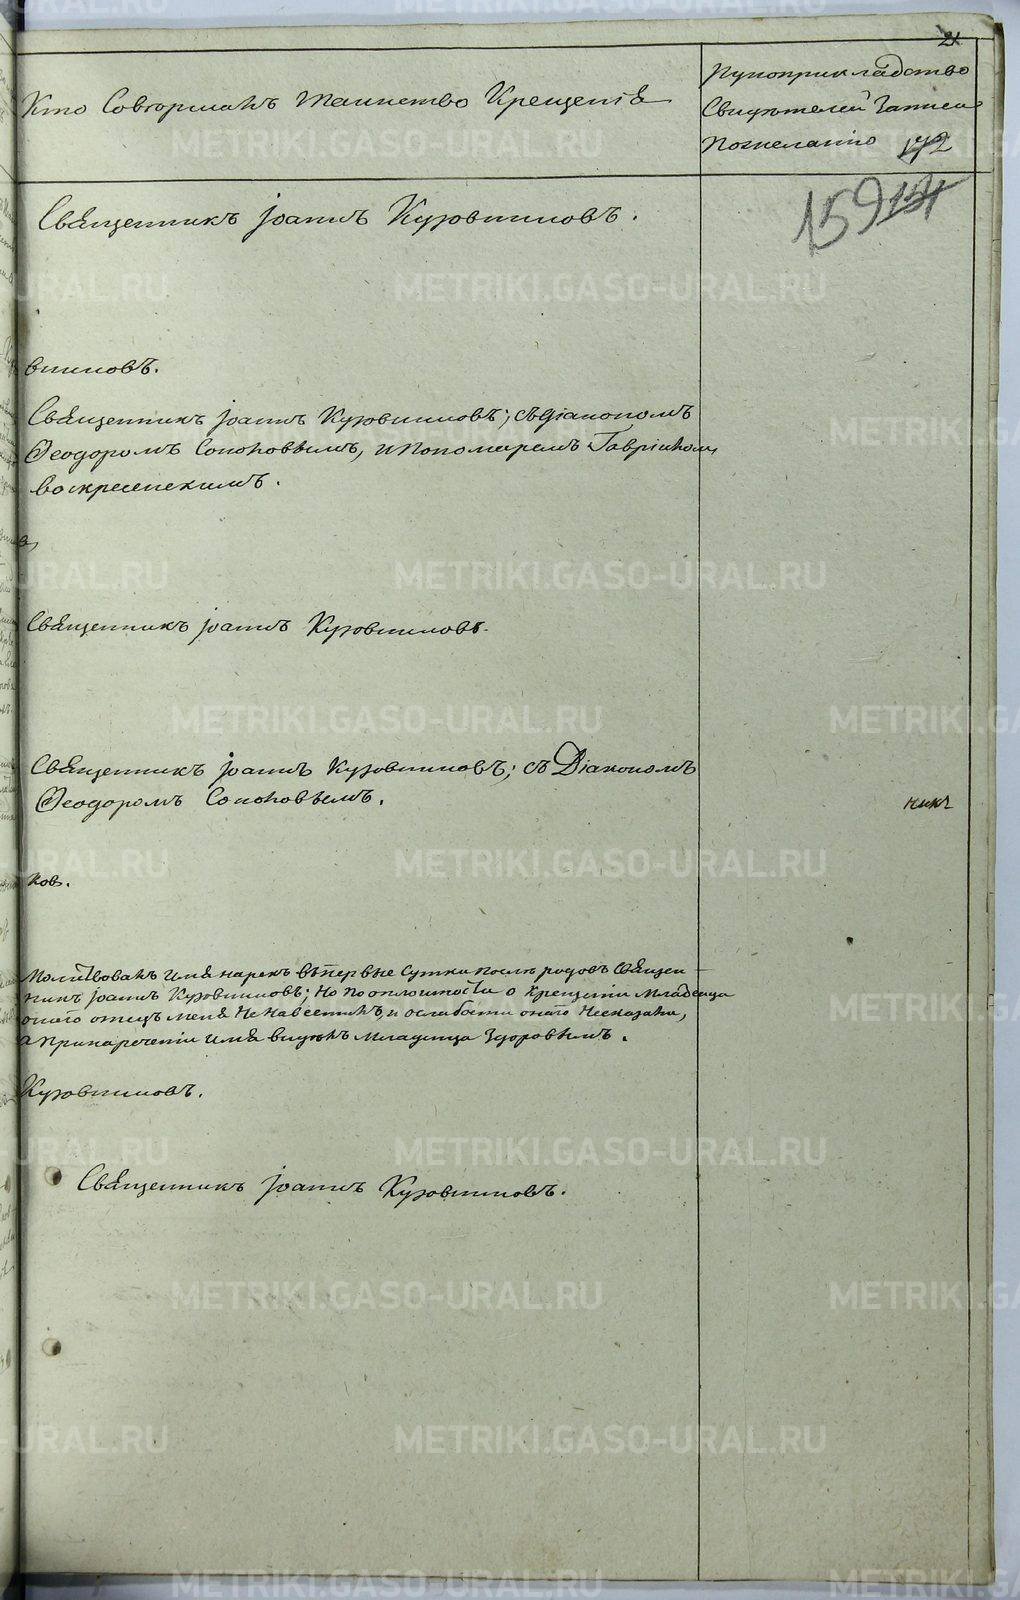 21
Кто Совершалъ Таинство Крещенія
Рукоприкладство
Свидѣтелей Записи
Пожеланію 172
159
Священникъ Іоаннъ Кузовниковъ.
вниковъ.
Священникъ Іоаннъ Кузовниковъ; съ Діакономъ
Ѳеодоромъ Соколовымъ, и Пономаремъ Гавріиломъ
Воскресенскимъ.
Священникъ Іоаннъ Кузовниковъ.
Священникъ Іоаннъ Кузовниковъ; съ Діакономъ
Ѳеодоромъ Соколовымъ.
никъ
ков.
Молитвовалъ имя нарекъ въ первые сутки послѣ родовъ Священ-
никъ Іоаннъ Кузовниковъ; но по оплошности о крещеніи младенца
онаго отецъ меня не навестилъ, и о слабости онаго несказалъ,
а принареченіи имя видѣлъ младенца здоровымъ.
Кузовниковъ.
Священникъ Іоаннъ Кузовниковъ.
METRIKI.GASO-URAL.RU